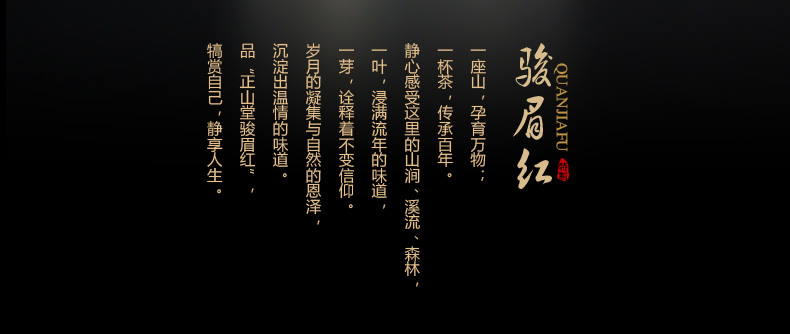 骏眉红
QUANJIAFU
一座山，孕育万物；
一杯茶，传承百年。
静心感受这里的山涧、溪流、森林，
一叶，浸满流年的味道，
一芽，诠释着不变信仰。
岁月的凝集与自然的恩泽，
沉淀出温情的味道。
品“正山堂骏眉红”，
犒赏自己，静享人生。